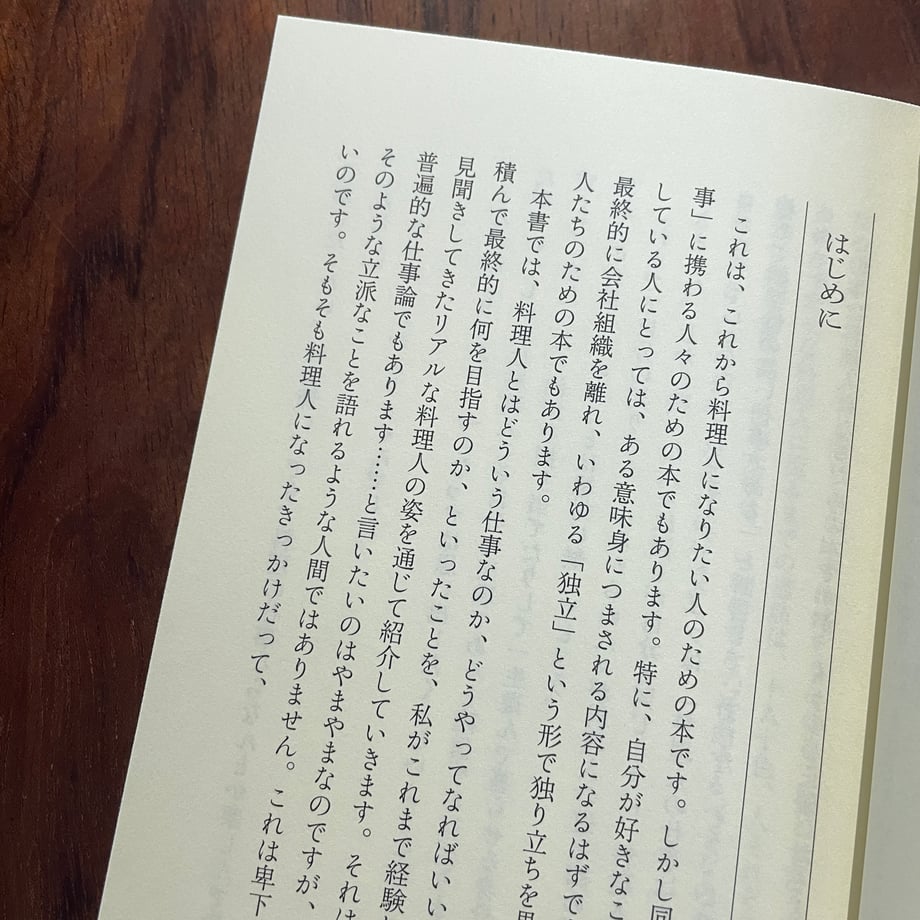 はじめに
これは、これから料理人になりたい人のための本です。しかし同
事」に携わる人々のための本でもあります。特に、自分が好きなこ
している人にとっては、ある意味身につまされる内容になるはずで
最終的に会社組織を離れ、いわゆる「独立」という形で独り立ちを
人たちのための本でもあります。
本書では、料理人とはどういう仕事なのか、どうやってなればいい
積んで最終的に何を目指すのか、といったことを、私がこれまで経験
見聞きしてきたリアルな料理人の姿を通じて紹介していきます。それは
普遍的な仕事論でもあります……と言いたいのはやまやまなのですが、
そのような立派なことを語れるような人間ではありません。これは卑下
いのです。そもそも料理人になったきっかけだって、